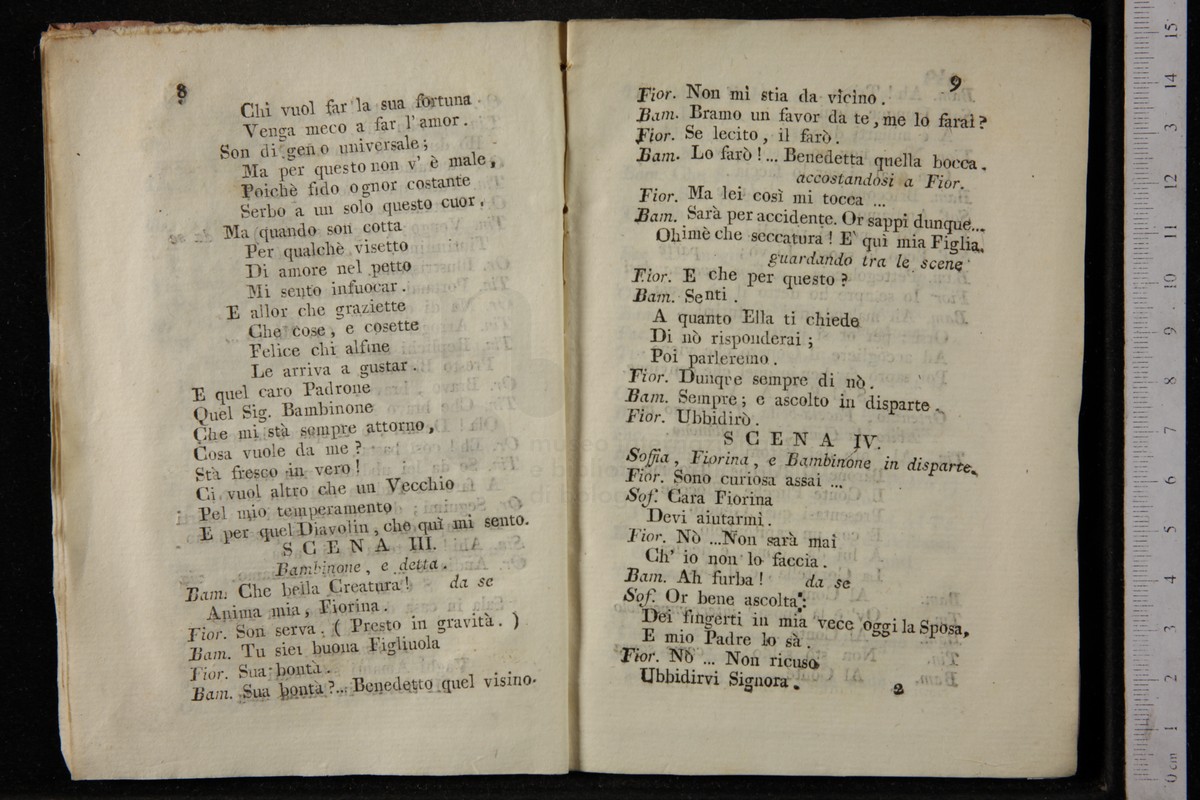 8
Chi vuol far la sua fortuna
Venga meco a far l'amor.
Son di geno universale;
Ma per questo non v'è male,
Poichè fido ognor costante
Serbo a un solo questo cuor.
Ma quando son cotta
Per qualchè visetto
Di amore nel petto
Mi sento infuocar.
E allor che graziette
Che cose, e cosette
Felice chi alfine
Le arriva a gustar.
E quel caro Padrone
Quel Sig. Bambinone
Che mi stà sempre attorno,
Cosa vuole da me?
Stà fresco in vero!
Ci vuol altro che un Vecchio
Pel mio temperamento
E per quel Diavolin, che quì mi sento.
SCENA III.
Bambinone, e detta.
Bam. Che bella Creatura! da se
Anima mia, Fiorina.
Fior. Son serva. (Presto in gravità.)
Bam. Tu siei buona Figliuola
Fior. Sua bontà.
Bam. Sua bontà?... Benedetto quel visino.
9
Fior. Non mi stia da vicino.
Bam. Bramo un favor da te, me lo farai?
Fior. Se lecito, il farò.
Bam. Lo farò!... Benedetta quella bocca.
accostandosi a Fior.
Fior. Ma lei così mi tocca ...
Bam. Sarà per accidente. Or sappi dunque...
Ohimè che seccatura! E' qui mia Figlia.
guardando tra le scene
Fior. E che per questo?
Bam. Senti.
A quanto Ella ti chiede
Di nò risponderai;
Poi parleremo.
Fior. Dunqve sempre di nò.
Bam. Sempre; e ascolto in disparte.
Fior. Ubbidirò.
SCENA IV.
Soffia, Fiorina, e Bambinone in disparte.
Fior. Sono curiosa assai ...
Sof. Cara Fiorina
Devi aiutarmi.
Fior. Nò ...Non sarà mai
Ch' io non lo faccia.
Bam. Ah furba! da se
Sof. Or bene ascolta:
Dei fingerti in mia vece oggi la Sposa,
E mio Padre lo sà.
Fior. Nò ... Non ricuso
Ubbidirvi Signora.
2
0 cm 1 2 3 4 5 6 7 8 9 10 11 12 13 14 15